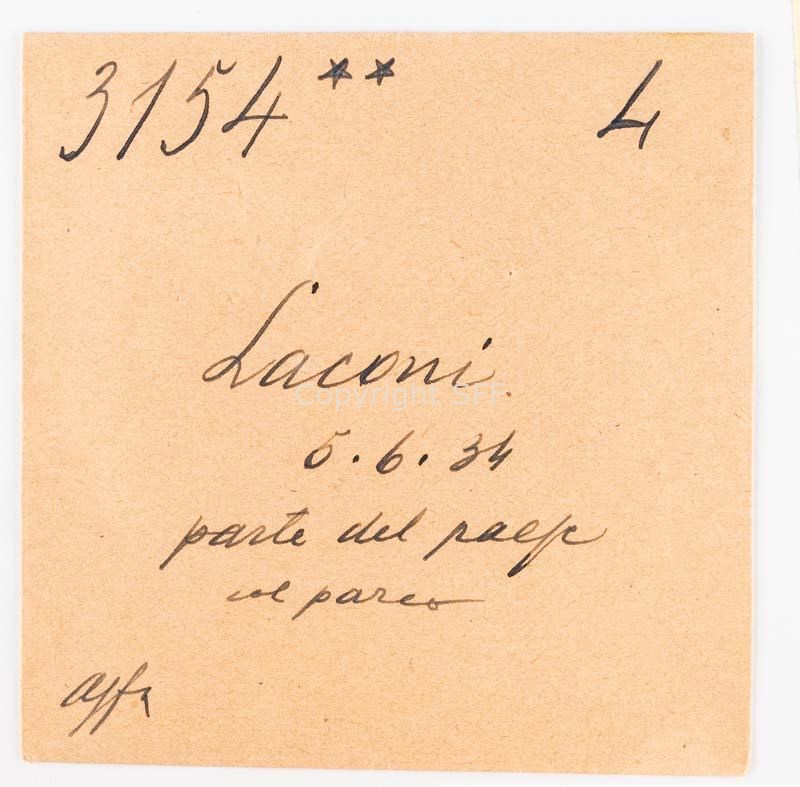 3154** L
Laconi
Copyright SFF
5.6.34
parte del paese
col parco